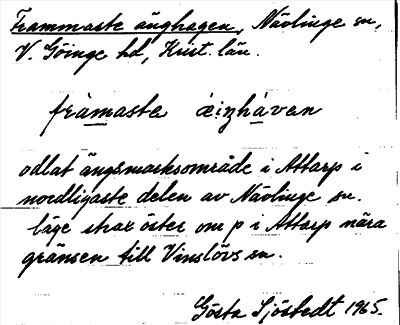 Frammaste änghagen, Nävlinge sn,
V. Göinge hd, Krist. län.
fràmasta ä̀i̯ŋhàvan
odlat ängsmarksområde i Attarp i
nordligaste delen av Nävlinge sn.
läge strax öster om p i Attarp nära
gränsen till Vinslövs sn.
Gösta Sjöstedt 1965.